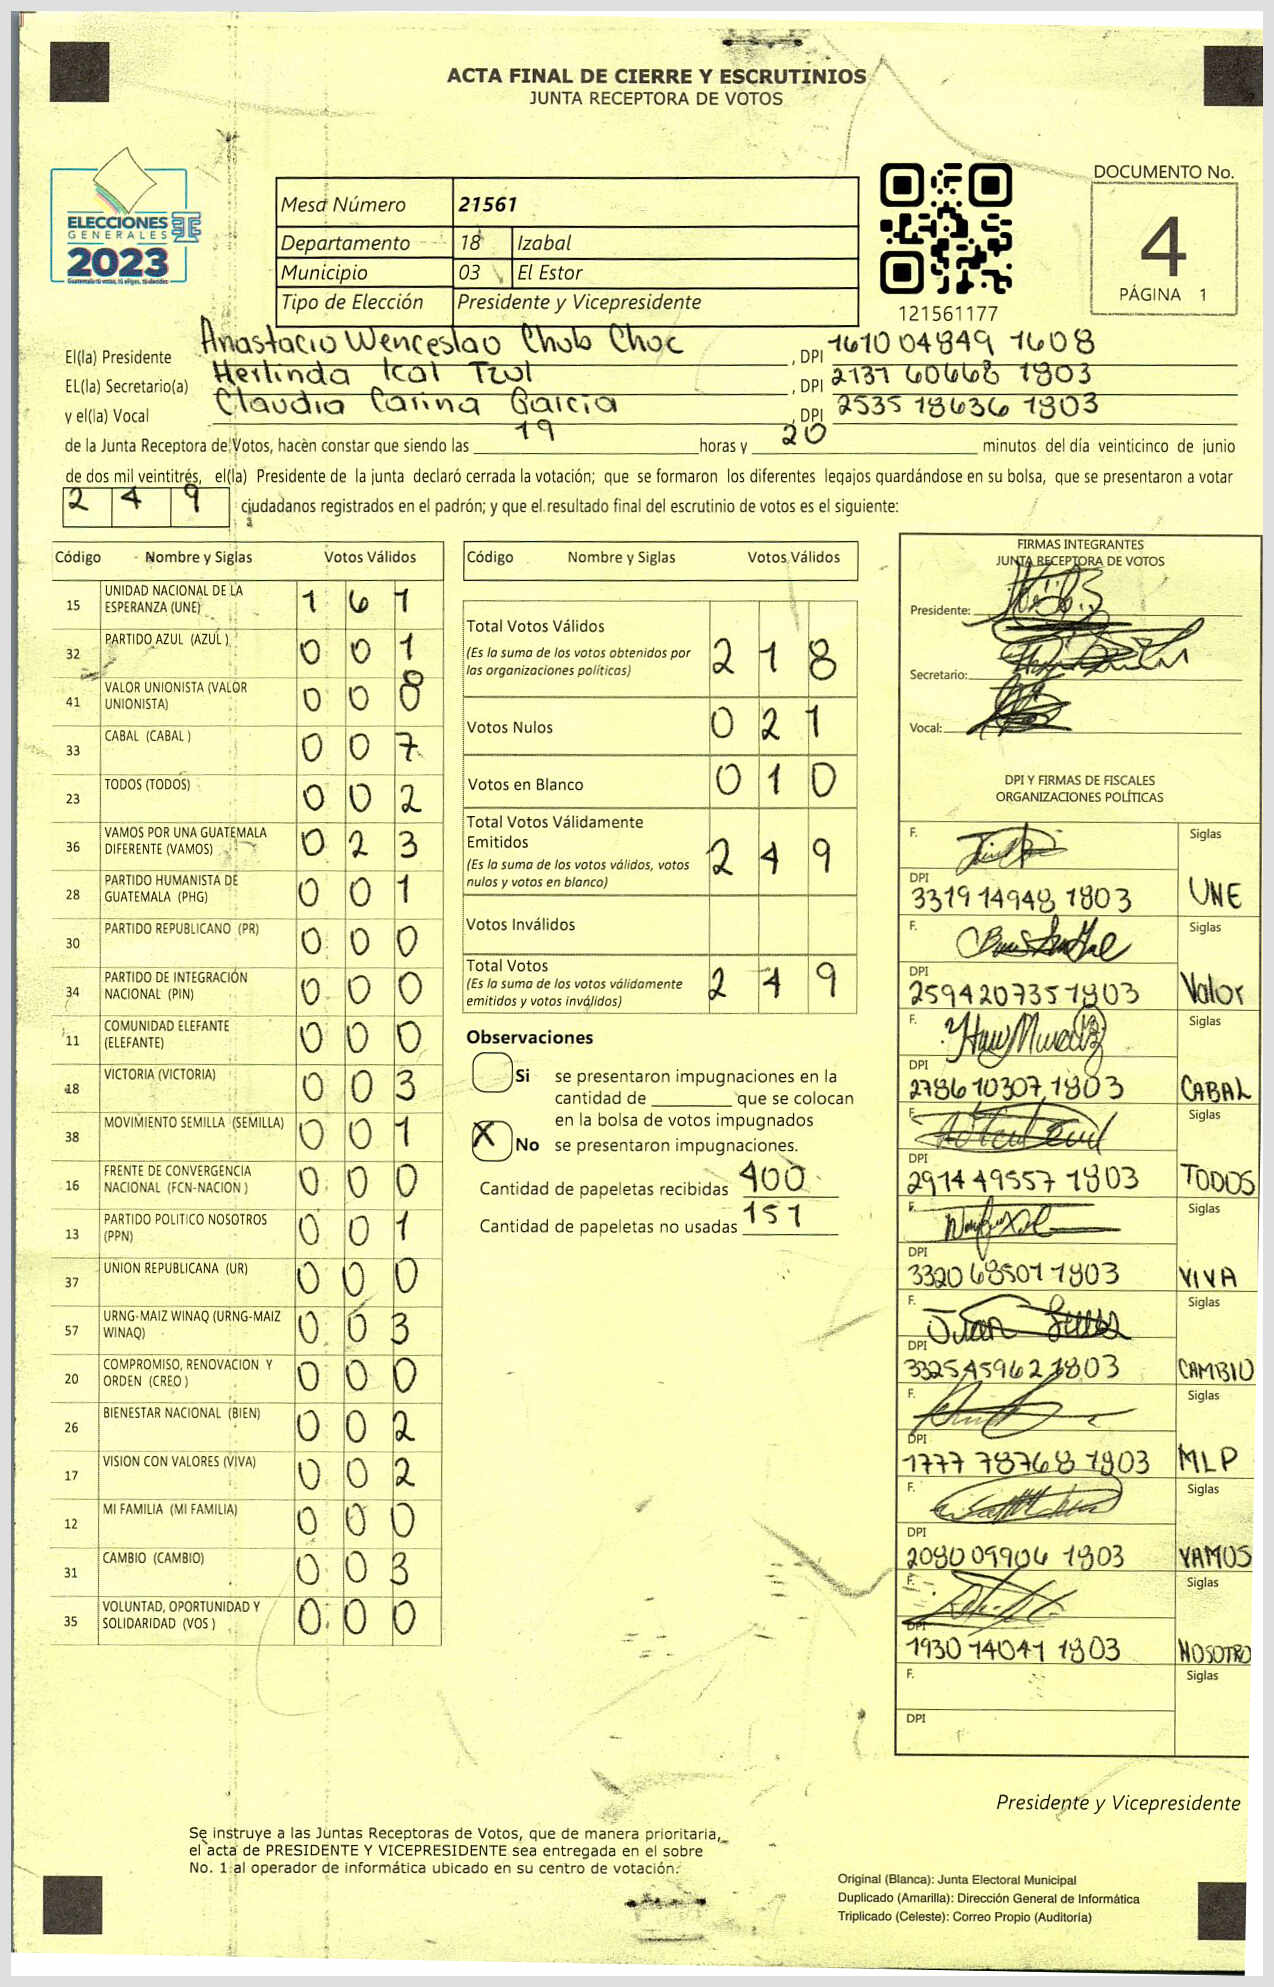 ACTA FINAL DE CIERRE Y ESCRUTINIOS
JUNTA RECEPTORA DE VOTOS
ELECCIONES
GENERALES
2023
Guatemala tú votas, tú eliges, tú decides
Mesa Número 21561
Departamento 18 Izabal
Municipio 03 El Estor
Tipo de Elección Presidente y Vicepresidente
121561177
DOCUMENTO No.
4
PÁGINA 1
El(la) Presidente Anastacio Wenceslao Chub Choc, DPI 1610 04849 1608
EL(la) Secretario(a) Herlinda Ical Tzul, DPI 2137 60668 1803
y el(la) Vocal Claudia Carina García, DPI 2535 18636 1803
de la Junta Receptora de Votos, hacen constar que siendo las 19 horas y 20 minutos del día veinticinco de junio
de dos mil veintitrés, el(la) Presidente de la junta declaró cerrada la votación; que se formaron los diferentes legajos guardándose en su bolsa, que se presentaron a votar
2 4 9 ciudadanos registrados en el padrón; y que el resultado final del escrutinio de votos es el siguiente:
Código Nombre y Siglas Votos Válidos
15 UNIDAD NACIONAL DE LA ESPERANZA (UNE) 1 6 1
32 PARTIDO AZUL (AZUL) 0 0 1
41 VALOR UNIONISTA (VALOR UNIONISTA) 0 0 8
33 CABAL (CABAL ) 0 0 7
23 TODOS (TODOS) 0 0 2
36 VAMOS POR UNA GUATEMALA DIFERENTE (VAMOS) 0 2 3
28 PARTIDO HUMANISTA DE GUATEMALA (PHG) 0 0 1
30 PARTIDO REPUBLICANO (PR) 0 0 0
34 PARTIDO DE INTEGRACIÓN NACIONAL (PIN) 0 0 0
11 COMUNIDAD ELEFANTE (ELEFANTE) 0 0 0
18 VICTORIA (VICTORIA) 0 0 3
38 MOVIMIENTO SEMILLA (SEMILLA) 0 0 1
16 FRENTE DE CONVERGENCIA NACIONAL (FCN-NACION ) 0 0 0
13 PARTIDO POLITICO NOSOTROS (PPN) 0 0 1
37 UNION REPUBLICANA (UR) 0 0 0
57 URNG-MAIZ WINAQ (URNG-MAIZ WINAQ) 0 0 3
20 COMPROMISO, RENOVACION Y ORDEN (CREO ) 0 0 0
26 BIENESTAR NACIONAL (BIEN) 0 0 2
17 VISION CON VALORES (VIVA) 0 0 2
12 MI FAMILIA (MI FAMILIA) 0 0 0
31 CAMBIO (CAMBIO) 0 0 3
35 VOLUNTAD, OPORTUNIDAD Y SOLIDARIDAD (VOS ) 0 0 0
Código Nombre y Siglas Votos Válidos
Total Votos Válidos 2 1 8
(Es la suma de los votos obtenidos por
las organizaciones políticas)
Votos Nulos 0 2 1
Votos en Blanco 0 1 0
Total Votos Válidamente
Emitidos 2 4 9
(Es la suma de los votos válidos, votos
nulos y votos en blanco)
Votos Inválidos
Total Votos 2 4 9
(Es la suma de los votos válidamente
emitidos y votos inválidos)
Observaciones
Si se presentaron impugnaciones en la
cantidad de ________ que se colocan
en la bolsa de votos impugnados
X No se presentaron impugnaciones.
Cantidad de papeletas recibidas 400
Cantidad de papeletas no usadas 151
FIRMAS INTEGRANTES
JUNTA RECEPTORA DE VOTOS
Presidente:
Secretario:
Vocal:
DPI Y FIRMAS DE FISCALES
ORGANIZACIONES POLÍTICAS
F. Siglas
DPI 3319 14948 1803 UNE
F. Siglas
DPI 2594 20735 1803 Valor
F. Siglas
DPI 2786 10307 1803 CABAL
F. Siglas
DPI 2914 49557 1803 TODOS
F. Siglas
DPI 3320 68501 1803 VIVA
F. Juan Siglas
DPI 3325 45962 1803 CAMBIO
F. Siglas
DPI 1777 78768 1803 MLP
F. Siglas
DPI 2080 09906 1803 VAMOS
F. Siglas
DPI 1930 14041 1803 NOSOTRO
F. Siglas
DPI
Presidente y Vicepresidente
Se instruye a las Juntas Receptoras de Votos, que de manera prioritaria,
el acta de PRESIDENTE Y VICEPRESIDENTE sea entregada en el sobre
No. 1 al operador de informática ubicado en su centro de votación.
Original (Blanca): Junta Electoral Municipal
Duplicado (Amarilla): Dirección General de Informática
Triplicado (Celeste): Correo Propio (Auditoría)